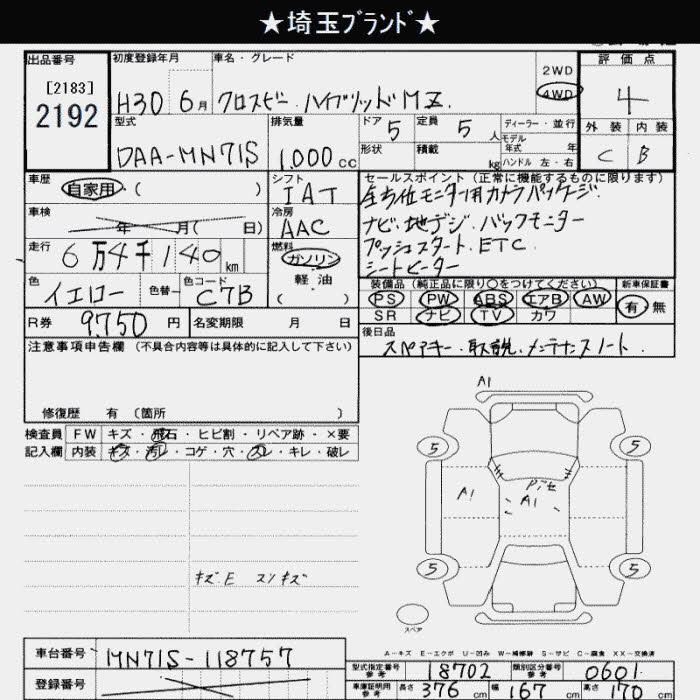 ★埼玉ﾌﾞﾗﾝﾄﾞ★
出品番号
[2183]
2192
初度登録年月
H30 6月
車名・グレード
クロスビー ハイブリッドMZ
2WD
4WD
評価点
4
外装 内装
C B
型式
DAA-MN71S
排気量
1,000cc
ドア 5
定員 5人
形状 積載 kg
ディーラー・並行
モデル年式 年
ハンドル 左・右
車歴
自家用・( )
シフト
IAT
車検
年 月( 日)
冷房
AAC
走行
6万4千140km
燃料
ガソリン
軽油
( )
色
イエロー
色替
色コード
C7B
セールスポイント(正常に機能するものに限ります)
全方位モニター用カメラパッケージ
ナビ・地デジ・バックモニター
プッシュスタート・ETC
シートヒーター
装備品(純正品に限り○をつけてください)
PS PW ABS エアB AW
SR ナビ TV カワ
新車保証書
有・無
R券 9,750円
名変期限 月 日
後日品
スペアキー・取説・メンテナンスノート
注意事項申告欄(不具合内容等は具体的に記入して下さい)
修復歴 有 〔箇所 〕
検査員記入欄
FW キズ・飛石・ヒビ割・リペア跡・×要
内装 キズ・汚レ・コゲ・穴・スレ・キレ・破レ
キズ・E スリキズ
A1
5 5
A1
A1
5 5
スペア
A-キズ E-エクボ U-凹み W-補修跡 S-サビ C-腐食 XX-交換済
車台番号
MN71S-118757
登録番号
型式指定番号参考 18702
類別区分番号参考 0601
車庫証明用参考 長さ 376cm 幅 167cm 高さ 170cm